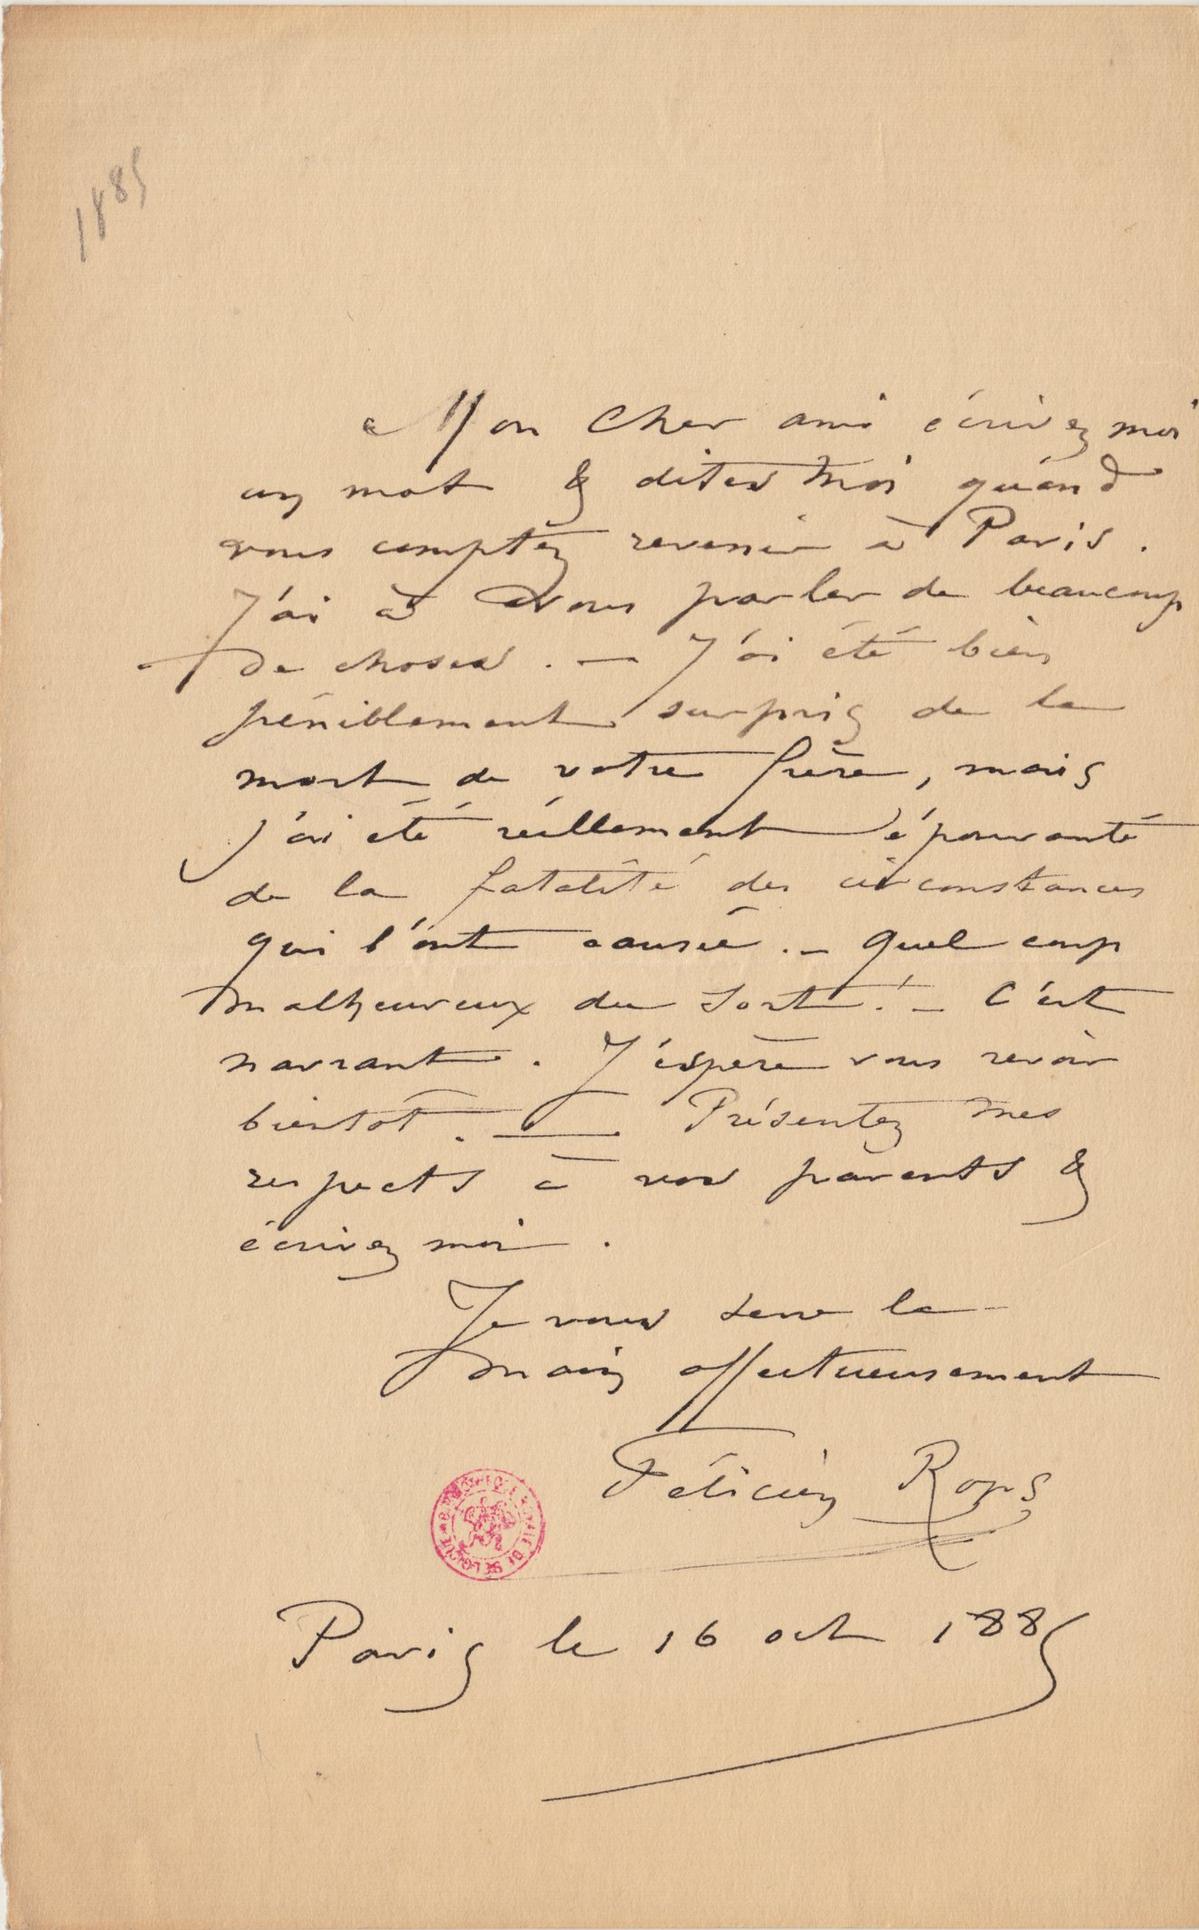 1885
Mon Cher ami écrivez moi
un mot & dites moi quand
vous comptez revenir à Paris.
J'ai à vous parler de beaucoup
de choses. — J'ai été bien
péniblement surpris de la
mort de votre frère, mais
j'ai été réellement épouvanté
de la fatalité des circonstances
qui l'ont causée. — quel coup
malheureux du sort! — C'est
navrant. J'espère vous revoir
bientôt. — Présentez mes
respects à vos parents &
écrivez moi.
Je vous serre la
main affectueusement
Félicien Rops
Paris le 16 oct 1885